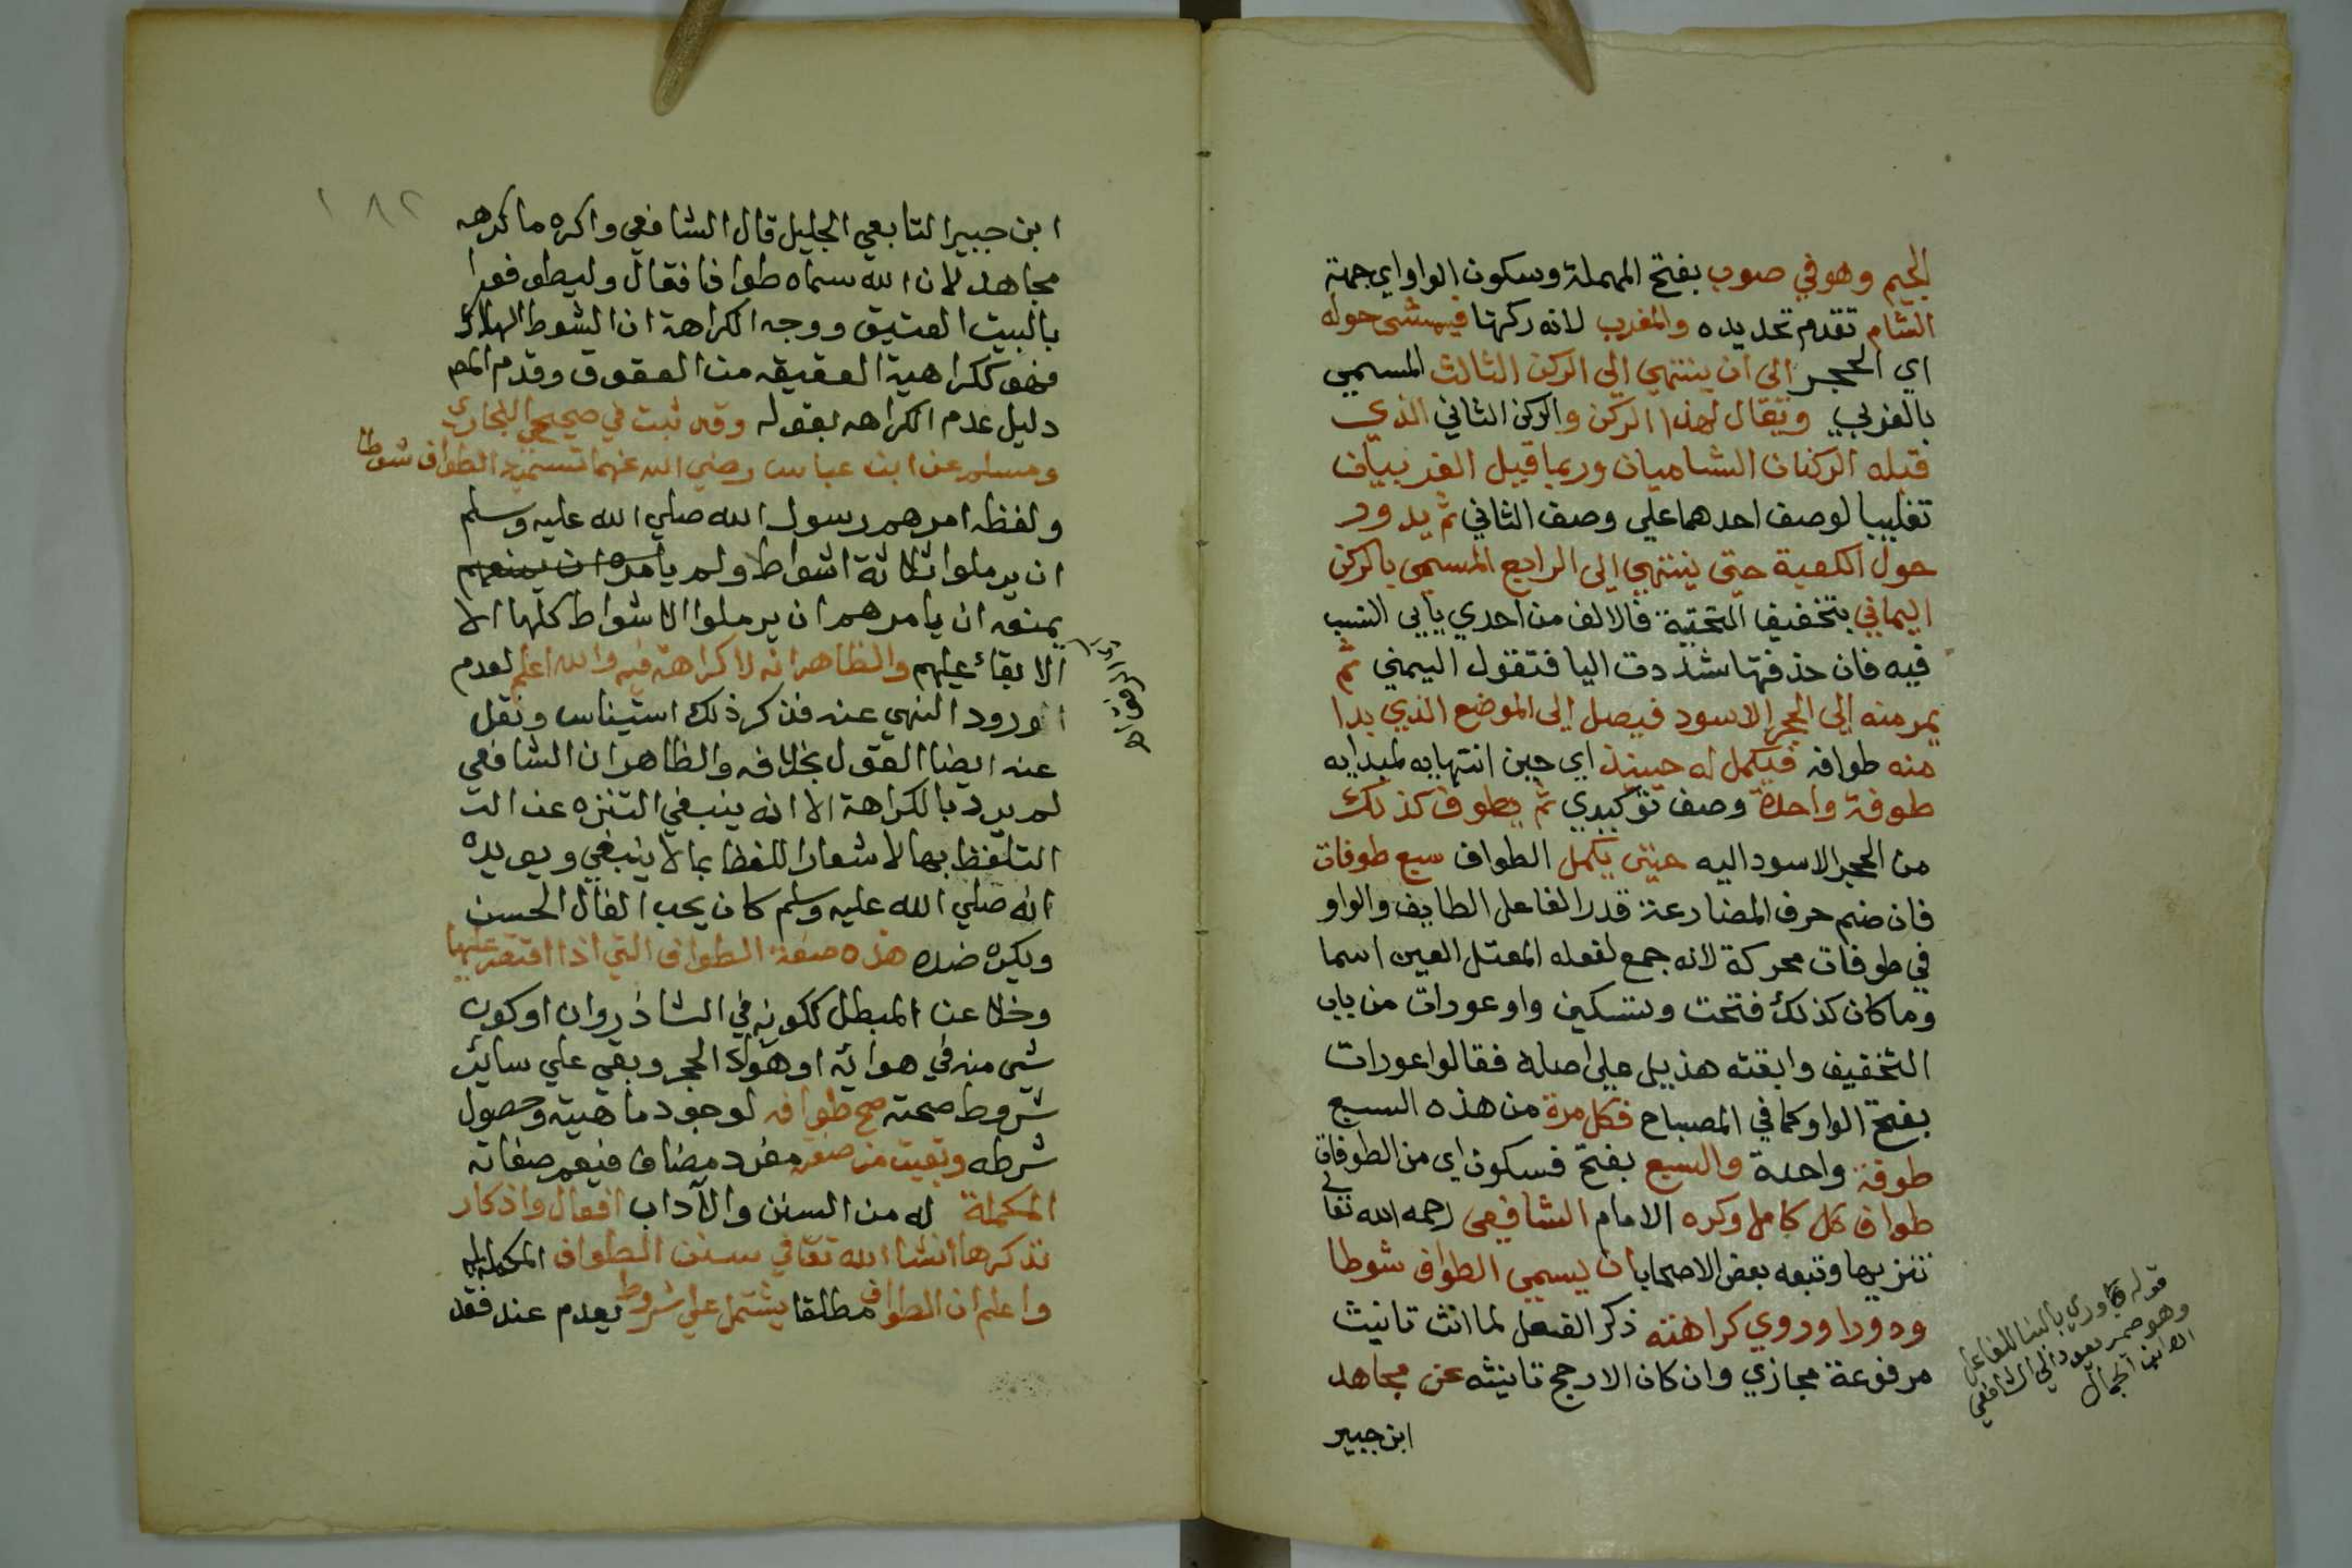 الجيم وهو في صوب بفتح المهملة وسكون الواو اي جهة
الشام تقدم تحديده والمغرب لانه ركهتا فيمشي حوله
اي الحجر الى ان ينتهي الي الركن الثالث المسمي
بالغربي ويقال لهذا الركن والركن الثاني الذي
قبله الركنان الشاميان وربما قيل الغربيان
تغليبا لوصف احدهما علي وصف الثاني ثم يدور
حول الكعبة حتى ينتهي الى الرابع المسمى بالركن
اليماني بتخفيف التحتية فالالف من احدي يايي النسب
فيه فان حذفتها شددت اليا فتقول اليمني ثم
يمر منه إلى الحجر الاسود فيصل إلى الموضع الذي بدا
منه طوافه فيكمل له حينيذ اي حين انتهايه لمبدايه
طوفة واحدة وصف توكيدي ثم يطوف كذلك
من الحجر الاسود اليه حتى يكمل الطواف سبع طوفات
فان ضم حرف المضارعة قدر الفاعل الطايف والواو
في طوفات محركة لانه جمع لفعله المعتل العين اسما
وما كان كذلك فتحت وتسكين واو عورات من باب
التخفيف وابقته هذيل على اصله فقالوا عورات
بفتح الواو كما في المصباح فكل مرة من هذه السبع
طوفة واحدة والسبع بفتح فسكون اي من الطوفات
طواف كل كامل وكره الامام الشافعي رحمه الله تعالى
تنزيها وتبعه بعض الاصحاب ان يسمي الطواف شوطا
ودورا وروي كراهته ذكر الفعل لما انث تانيث
مرفوعة مجازي وان كان الارجح تانيثه عن مجاهد
ابن جبير
قوله وروي بالبنا للفاعل
وهو ضمير يعود الي الشافعي
اهـ ابن الجمال
١٨٢
ابن جبير التابعي الجليل قال الشافعي واكره ما كرهه
مجاهد لان الله سماه طوافا فقال وليطوفوا
بالبيت العتيق ووجه الكراهة ان الشوط الهلاك
فهو ككراهية العقيقه من العقوق وقدم المص
دليل عدم الكراهه بقوله وقد ثبت في صحيحي البخاري
ومسلم عن ابن عباس رضي الله عنهما تسمية الطواف شوطا
ولفظه امرهم رسول الله صلي الله عليه وسلم
ان يرملوا ثلاثة اشواط ولم يامره ان يمنعهم
يمنعه ان يامرهم ان يرملوا الاشواط كلها الا
الابقاء عليهم والظاهر انه لا كراهة فيه والله اعلم لعدم
ورود النهي عنه فذكر ذلك استيناس ونقل
عنه ايضا القول بخلافه والظاهر ان الشافعي
لم يرد بالكراهة الا انه ينبغي التنزه عن الت
التلفظ بها لاشعار اللفظ بما لا ينبغي ويويده
انه صلي الله عليه وسلم كان يحب الفال الحسن
ويكره ضده هذه صفة الطواف التي اذا اقتصر عليها
وخلا عن المبطل ككونه في الشاذروان او كون
شي منه في هوائه او هواء الحجر وبقي علي سائر
شروط صحته صح طوافه لوجود ماهيته وحصول
شرطه وبقيت من صفته مفرد مضاف فيعم صفاته
المكملة له من السنن والآداب افعال واذكار
نذكرها انشا الله تعا في سنن الطواف المكملة له
واعلم ان الطواف مطلقا يشتمل علي شروط يعدم عند فقد